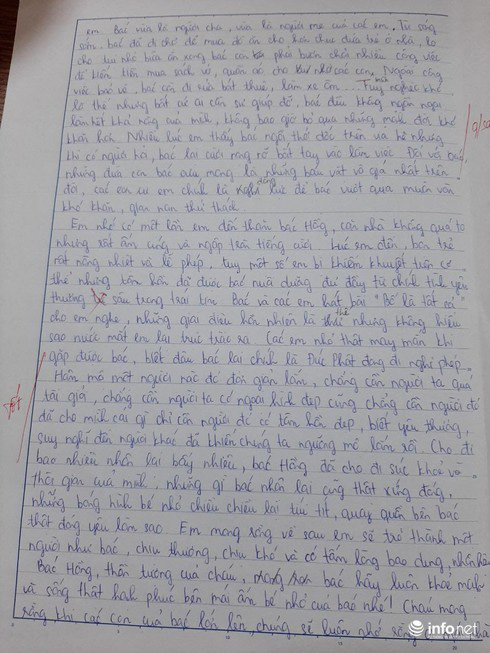 em. Bác vừa là người cha, vừa là người mẹ của các em. Từ sáng
sớm, bác đã đi chợ để mua đồ ăn cho hơn chục đứa trẻ ở nhà, lo
cho tụi nhỏ bữa ăn xong bác còn phải bươn chải nhiều công việc
để kiếm tiền mua sách vở, quần áo cho các con. Ngoài công
việc bảo vệ, bác còn đi sửa bất thuê, làm xe ôm... Tuy nghèo khó
là thế nhưng bất cứ ai cần sự giúp đỡ, bác đều không ngần ngại
làm hết khả năng của mình, không bao giờ bỏ qua những mảnh đời khó
khăn hơn. Nhiều lúc em thấy bác ngồi thở dốc trên vỉa hè nhưng
khi có người hỏi, bác lại cười rạng rỡ bắt tay vào làm việc. Đối với bác,
những đứa con bác cưu mang là những báu vật vô giá nhất trên
đời, các em ấy chính là động lực để bác vượt qua muôn vàn
khó khăn, gian nan thử thách.
Em nhớ có một lần em đến thăm bác Hồng, căn nhà không quá to
nhưng rất ấm cúng và ngập tràn tiếng cười. Lúc em đến, bọn trẻ
rất năng nhiệt và lễ phép, tuy một số em bị khiếm khuyết trên cơ
thể nhưng tâm hồn đã được bác nuôi dưỡng đủ đầy từ chính tình yêu
thương sâu trong trái tim. Bác và các em hát bài "Bố là tất cả"
cho em nghe, những giai điệu hồn nhiên là thế nhưng không hiểu
sao nước mắt em lại trực trào ra. Các em nhỏ thật may mắn khi
gặp được bác, biết đâu bác lại chính là Đức Phật đang đi nghỉ phép.
Hâm mộ một người nào đó đơn giản lắm, chẳng cần người ta quá
tài giỏi, chẳng cần người ta có ngoại hình đẹp cũng chẳng cần người đó
đã cho mình cái gì chỉ cần người đó có tâm hồn đẹp, biết yêu thương,
suy nghĩ đến người khác đã khiến chúng ta ngưỡng mộ lắm rồi. Cho đi
bao nhiêu nhận lại bấy nhiêu, bác Hồng đã cho đi sức khoẻ và
thời gian của mình, những gì bác nhận lại cũng thật xứng đáng,
những bóng hình bé nhỏ chiều chiều lại túi tít, quây quần bên bác
thật đáng yêu làm sao. Em mong rằng về sau em sẽ trở thành một
người như bác, chịu thương, chịu khó và có tấm lòng bao dung, nhân hậu.
Bác Hồng, thần tượng của cháu, mong bác hãy luôn khoẻ mạnh
và sống thật hạnh phúc bên mái ấm bé nhỏ của bác nhé! Cháu mong
rằng khi các con của bác lớn lên, chúng sẽ luôn nhớ rằng
infonet